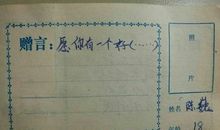 赠言：愿你有一个好(……)
照
片
姓名 陈魏
年龄 18